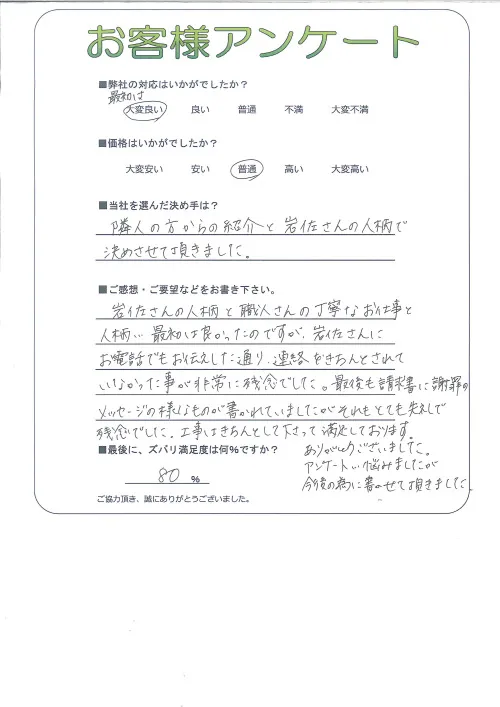 お客様アンケート
■弊社の対応はいかがでしたか？
最初は
大変良い 良い 普通 不満 大変不満
■価格はいかがでしたか？
大変安い 安い 普通 高い 大変高い
■当社を選んだ決め手は？
隣人の方からの紹介と岩佐さんの人柄で
決めさせて頂きました。
■ご感想・ご要望などをお書き下さい。
岩佐さんの人柄と職人さんの丁寧なお仕事と
人柄… 最初は良かったのですが、岩佐さんに
お電話でもお伝えした通り、連絡をきちんとされて
いなかった事が非常に残念でした。最後も請求書に謝罪の
メッセージの様なものが書かれていましたがそれもとても失礼で
残念でした。工事はきちんとして下さって満足しております。
■最後に、ズバリ満足度は何％ですか？
80 %
ありがとうございました。
アンケート…悩みましたが
今後の為に書かせて頂きました。
ご協力頂き、誠にありがとうございました。